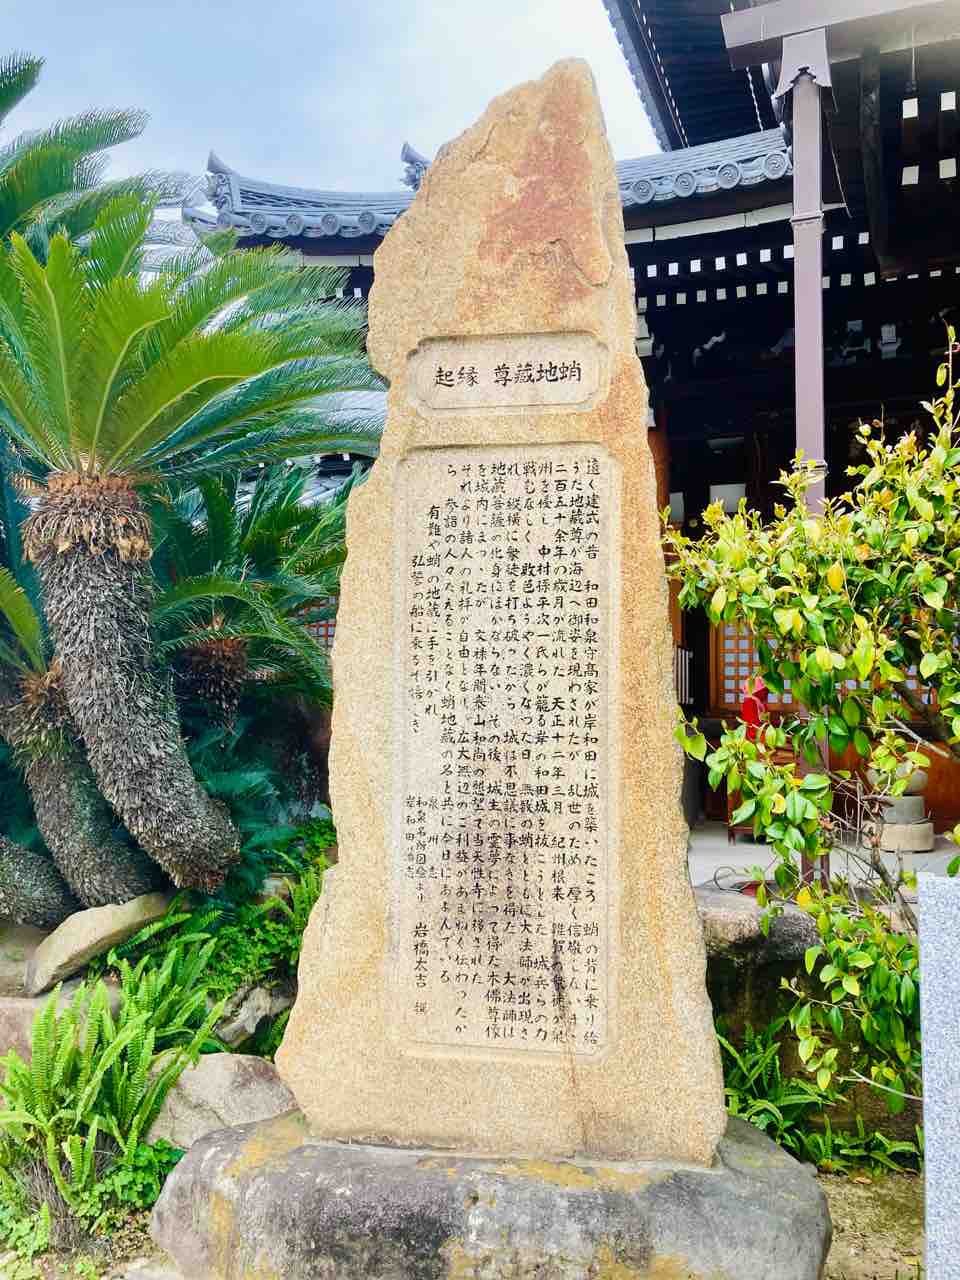 蛸地藏尊 縁起
遠く建武の昔 和田和泉守髙家が岸和田に城を築いたころ 蛸の背に乗り給
うた地蔵尊が海辺へ御姿を現わされたが 乱世のため 厚く信敬しないまゝ
二百五十余年の歳月が流れた 天正十二年三月 紀州根来 雑賀の衆徒が泉
州を侵し 中村孫平次一氏らが籠る岸の和田城を抜こうとした 城兵らの力
戦むなしく 敗色ようやく濃くなった日 無数の蛸とともに大法師が出現さ
れ 縦横に衆徒を打ち破ったから 城は不思議に事なきを得た 大法師は
地蔵菩薩の化身にほかならない その後 城主の霊夢によって得た木佛尊像
を城内にまつったが 文禄年間泰山和尚の懇望で当天性寺に移された
それより諸人の礼拝が自由となり 広大無辺のご利益があまねく伝わったか
ら 参詣の人々たえることなく蛸地蔵の名と共に今日におよんでいる
有難や蛸の地蔵に手を引かれ
弘誓の船に乗るぞ嬉しき
泉州志
和泉名所図会より 岩橋太吉 撰
岸和田市志